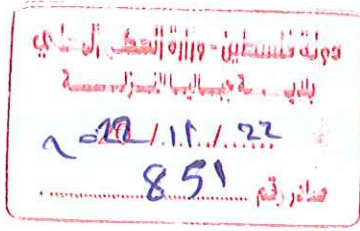 دولة فلسطين - وزارة الحكم المحلي
بلدية جباليا النزلة
22/11/2022 م
صادر رقم 851